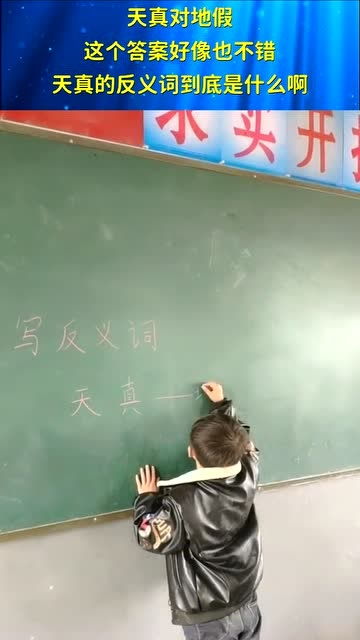 天真对地假
这个答案好像也不错
天真的反义词到底是什么啊
求实开拓
写反义词
天真—